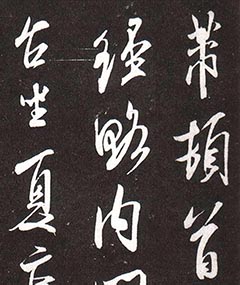 芾頓首
經略內
台坐夏